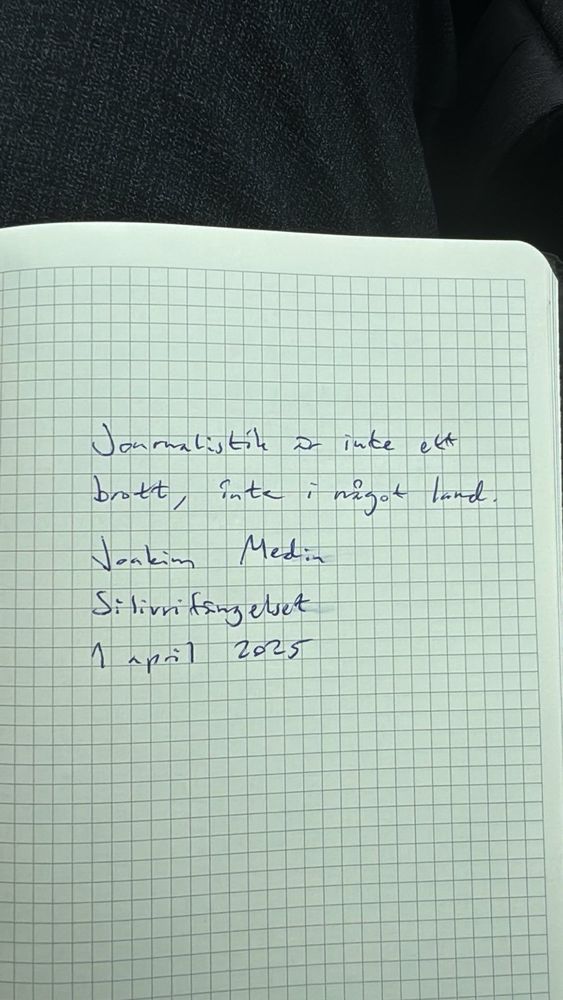 Journalistik är inte ett
brott, inte i något land.
Joakim Medin
Silivrifängelset
1 april 2025